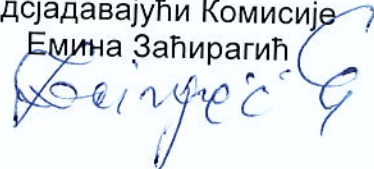 дсјадавајући Комисије
Емина Заћирагић